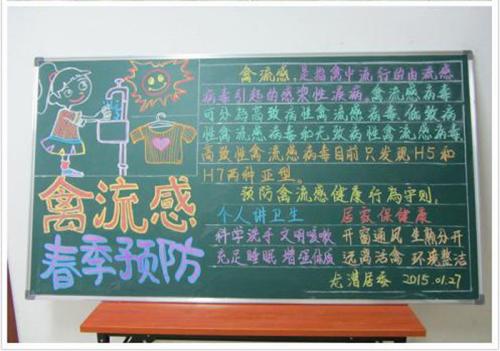 禽流感
春季预防
禽流感,是指禽中流行的由流感
病毒引起的感染性疾病,禽流感病毒
可分为高致病性禽流感病毒、低致病
性禽流感病毒和无致病性禽流感病毒
高致病性禽流感病毒目前只发现H5和
H7两种亚型。
预防禽流感健康行为守则。
个人讲卫生 居家保健康
科学洗手 文明咳嗽 开窗通风 生熟分开
充足睡眠 增强体质 远离活禽 环境整洁
龙潜居委 2015.01.27